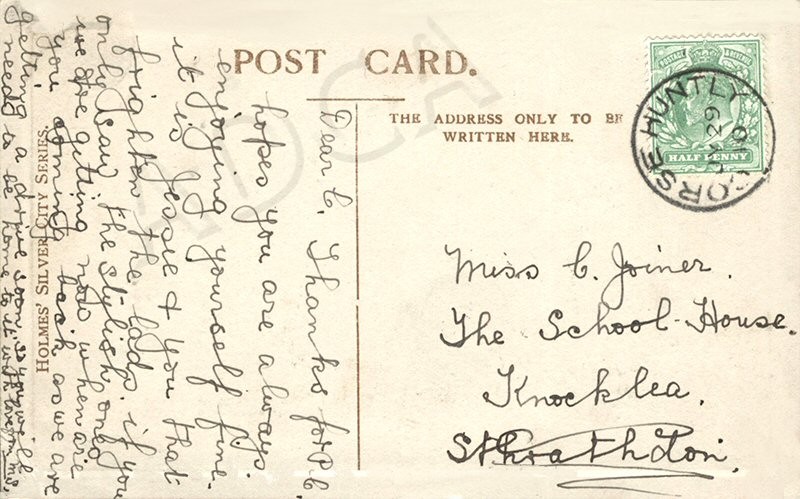 POST CARD.
THE ADDRESS ONLY TO BE
WRITTEN HERE.
HALF PENNY
HUNTLY
GORSE
29
Miss C. Joiner.
The School-House.
Knocklea.
Strathdon.
Dear C. Thanks for P.C.
hopes you are always
enjoying yourself fine.
it is Jessie & you that
frighten the lads. if you
only saw the stylish ones
we are getting now when are
you coming back as we are
getting a drive soon, so you will
need to be home to it with love from
HOLMES' SILVER CITY SERIES.
ADCA